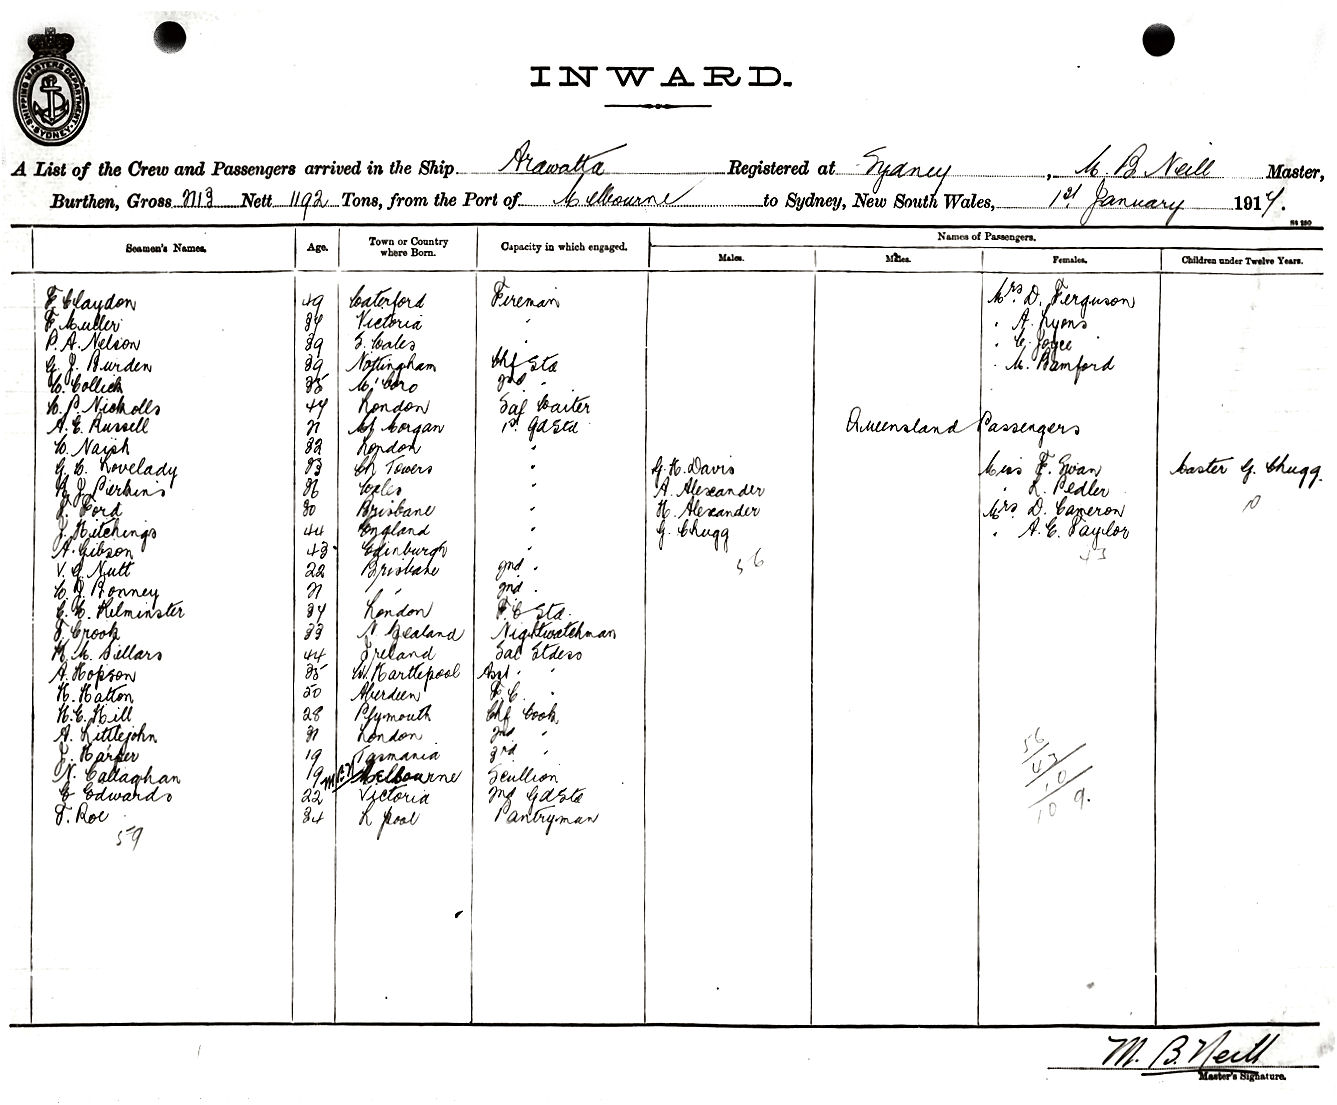 SHIPPING MASTERS DEPARTMENT
SYDNEY
INWARD.
A List of the Crew and Passengers arrived in the Ship Arawatta Registered at Sydney, M. B. Neill Master,
Burthen, Gross 2113 Nett 1192 Tons, from the Port of Melbourne to Sydney, New South Wales, 1st January 1914.
Seamen's Names. Age. Town or Country where Born. Capacity in which engaged. Names of Passengers.
Males. Males. Females. Children under Twelve Years.
F. Claydon 49 Waterford Fireman Mrs D. Ferguson
F. Muller 34 Victoria " " A. Lyons
P. A. Nelson 39 S. Wales " " C. Joyce
G. J. Burden 39 Nottingham Chf Std " M. Bamford
W. Collick 35 M'boro 2nd "
W. P. Nicholls 47 London Sal Waiter
A. E. Russell 21 Mt Morgan 1st Gd Std Queensland Passengers
W. Naish 32 London "
G. W. Lovelady 33 Ch Towers " G. H. Davis Miss F. Swan Master G. Chugg
H. J. Perkins 36 Wales " A. Alexander " L. Pedler
J. Ford 30 Brisbane " H. Alexander Mrs D. Cameron 10
J. Hitchings 44 England " G. Chugg " A. E. Taylor
A. Gibson 43 Edinburgh " 56 43
V. C. Nutt 22 Brisbane 2nd "
W. J. Bonney 21 " 2nd "
C. W. Helminster 34 London F. C Std.
J. Crook 33 N Zealand Nightwatchman
H. M. Sillars 44 Ireland Sal Stdess
A. Hopson 35 W. Hartlepool Asst " "
H. Hatton 50 Aberdeen F. C. "
H. C. Hill 28 Plymouth Chf Cook
A. Littlejohn 21 London 2nd "
J. Harper 19 Tasmania 3rd "
N. Callaghan 19 Melbourne Scullion
G Edwards 22 Victoria 2nd Gd Std
J. Roe 34 L pool Pantryman
59
56
43
10
109.
M. B. Neill
Master's Signature.